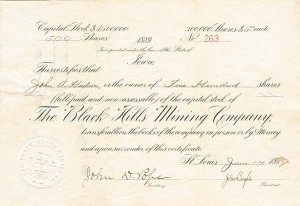 Capital Stock $1,500,000 300,000 Shares $5 each
500 Shares 1889 No 263
Incorporated under the laws of the State of
Iowa.
This certifies that
John A. is the owner of Five Hundred shares
(full paid and non-assessable) of the capital stock of
The Black Hills Mining Company,
transferable on the books of the company in person or by Attorney
and upon surrender of this certificate.
St. Louis June 188
John D. Pope
Secretary President